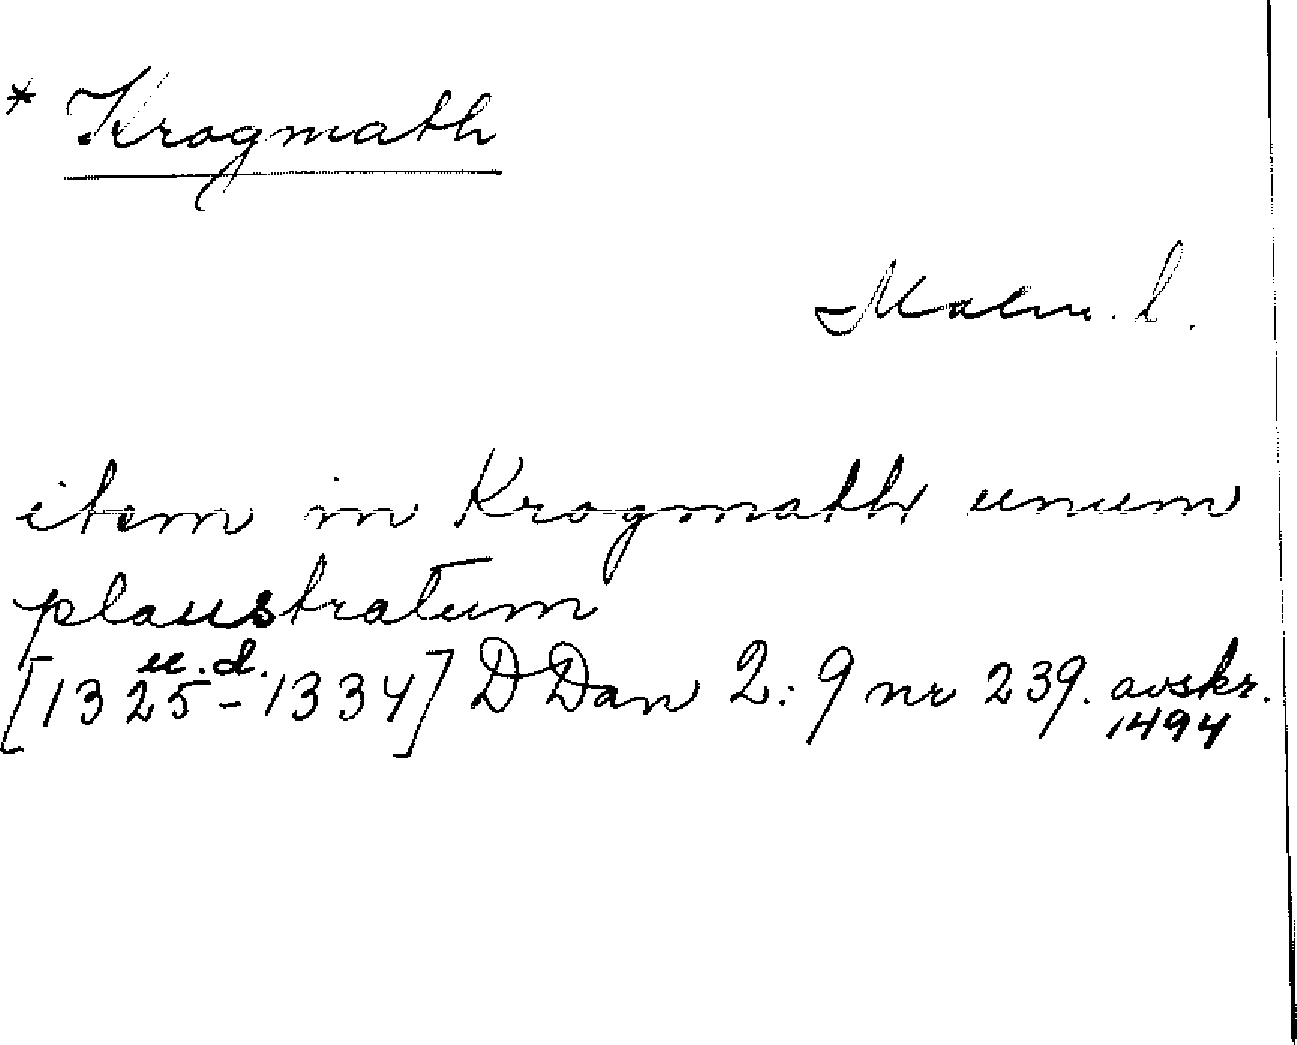 * Krogmath
Malm. l.
item in Krogmath unum
plaustratum
u.d.
[1325-1334] DDan 2:9 nr 239. avskr.
1494